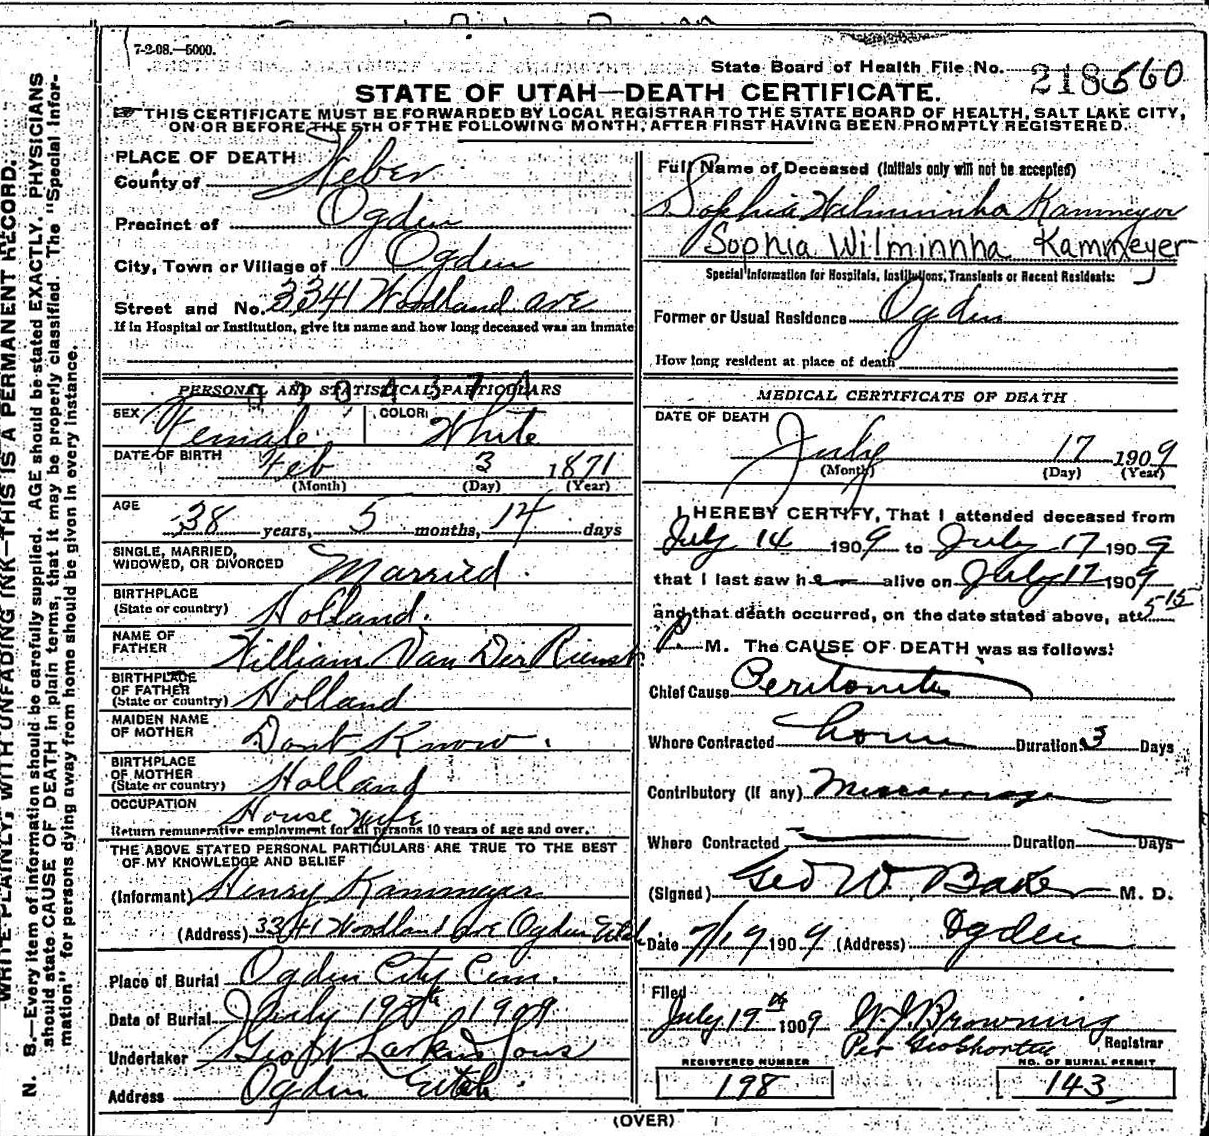 7-2-08.—5000.
State Board of Health File No. 218560
STATE OF UTAH—DEATH CERTIFICATE.
THIS CERTIFICATE MUST BE FORWARDED BY LOCAL REGISTRAR TO THE STATE BOARD OF HEALTH, SALT LAKE CITY,
ON OR BEFORE THE 5TH OF THE FOLLOWING MONTH, AFTER FIRST HAVING BEEN PROMPTLY REGISTERED.
WRITE PLAINLY, WITH UNFADING INK—THIS IS A PERMANENT RECORD.
N. B.—Every item of information should be carefully supplied. AGE should be stated EXACTLY. PHYSICIANS
should state CAUSE OF DEATH in plain terms, that it may be properly classified. The "Special Infor-
mation" for persons dying away from home should be given in every instance.
PLACE OF DEATH
County of Weber
Precinct of Ogden
City, Town or Village of Ogden
Street and No. 3341 Woodland ave
If in Hospital or Institution, give its name and how long deceased was an inmate
PERSONAL AND STATISTICAL PARTICULARS
SEX Female COLOR White
DATE OF BIRTH Feb 3 1871
(Month) (Day) (Year)
AGE 38 years, 5 months, 14 days
SINGLE, MARRIED,
WIDOWED, OR DIVORCED Married.
BIRTHPLACE
(State or country) Holland.
NAME OF
FATHER William Van Der
BIRTHPLACE
OF FATHER
(State or country) Holland
MAIDEN NAME
OF MOTHER Dont Know.
BIRTHPLACE
OF MOTHER
(State or country) Holland
OCCUPATION House Wife
Return remunerative employment for all persons 10 years of age and over.
THE ABOVE STATED PERSONAL PARTICULARS ARE TRUE TO THE BEST
OF MY KNOWLEDGE AND BELIEF
(Informant) Henry Kammeyer
(Address) 3341 Woodland Ave Ogden Utah
Place of Burial Ogden City Cem.
Date of Burial July 1909
Undertaker Larkin Sons
Address Ogden Utah
Full Name of Deceased (Initials only will not be accepted)
Sophia Wilminnha Kammeyer
Sophia Wilminnha Kammeyer
Special Information for Hospitals, Institutions, Transients or Recent Residents:
Former or Usual Residence Ogden
How long resident at place of death
MEDICAL CERTIFICATE OF DEATH
DATE OF DEATH
July 17 1909
(Month) (Day) (Year)
I HEREBY CERTIFY, That I attended deceased from
July 14 1909 to July 17 1909
that I last saw h alive on July 17 1909
and that death occurred, on the date stated above, at 5 15
P. M. The CAUSE OF DEATH was as follows:
Chief Cause Peritonitis
Where Contracted home Duration 3 Days
Contributory (if any) Miscarriage
Where Contracted Duration Days
(Signed) Geo W. Baker M. D.
Date 7/19 1909 (Address) Ogden
Filed
July 19th 1909 W. J. Browning
Per Registrar
REGISTERED NUMBER NO. OF BURIAL PERMIT
198 143
(OVER)